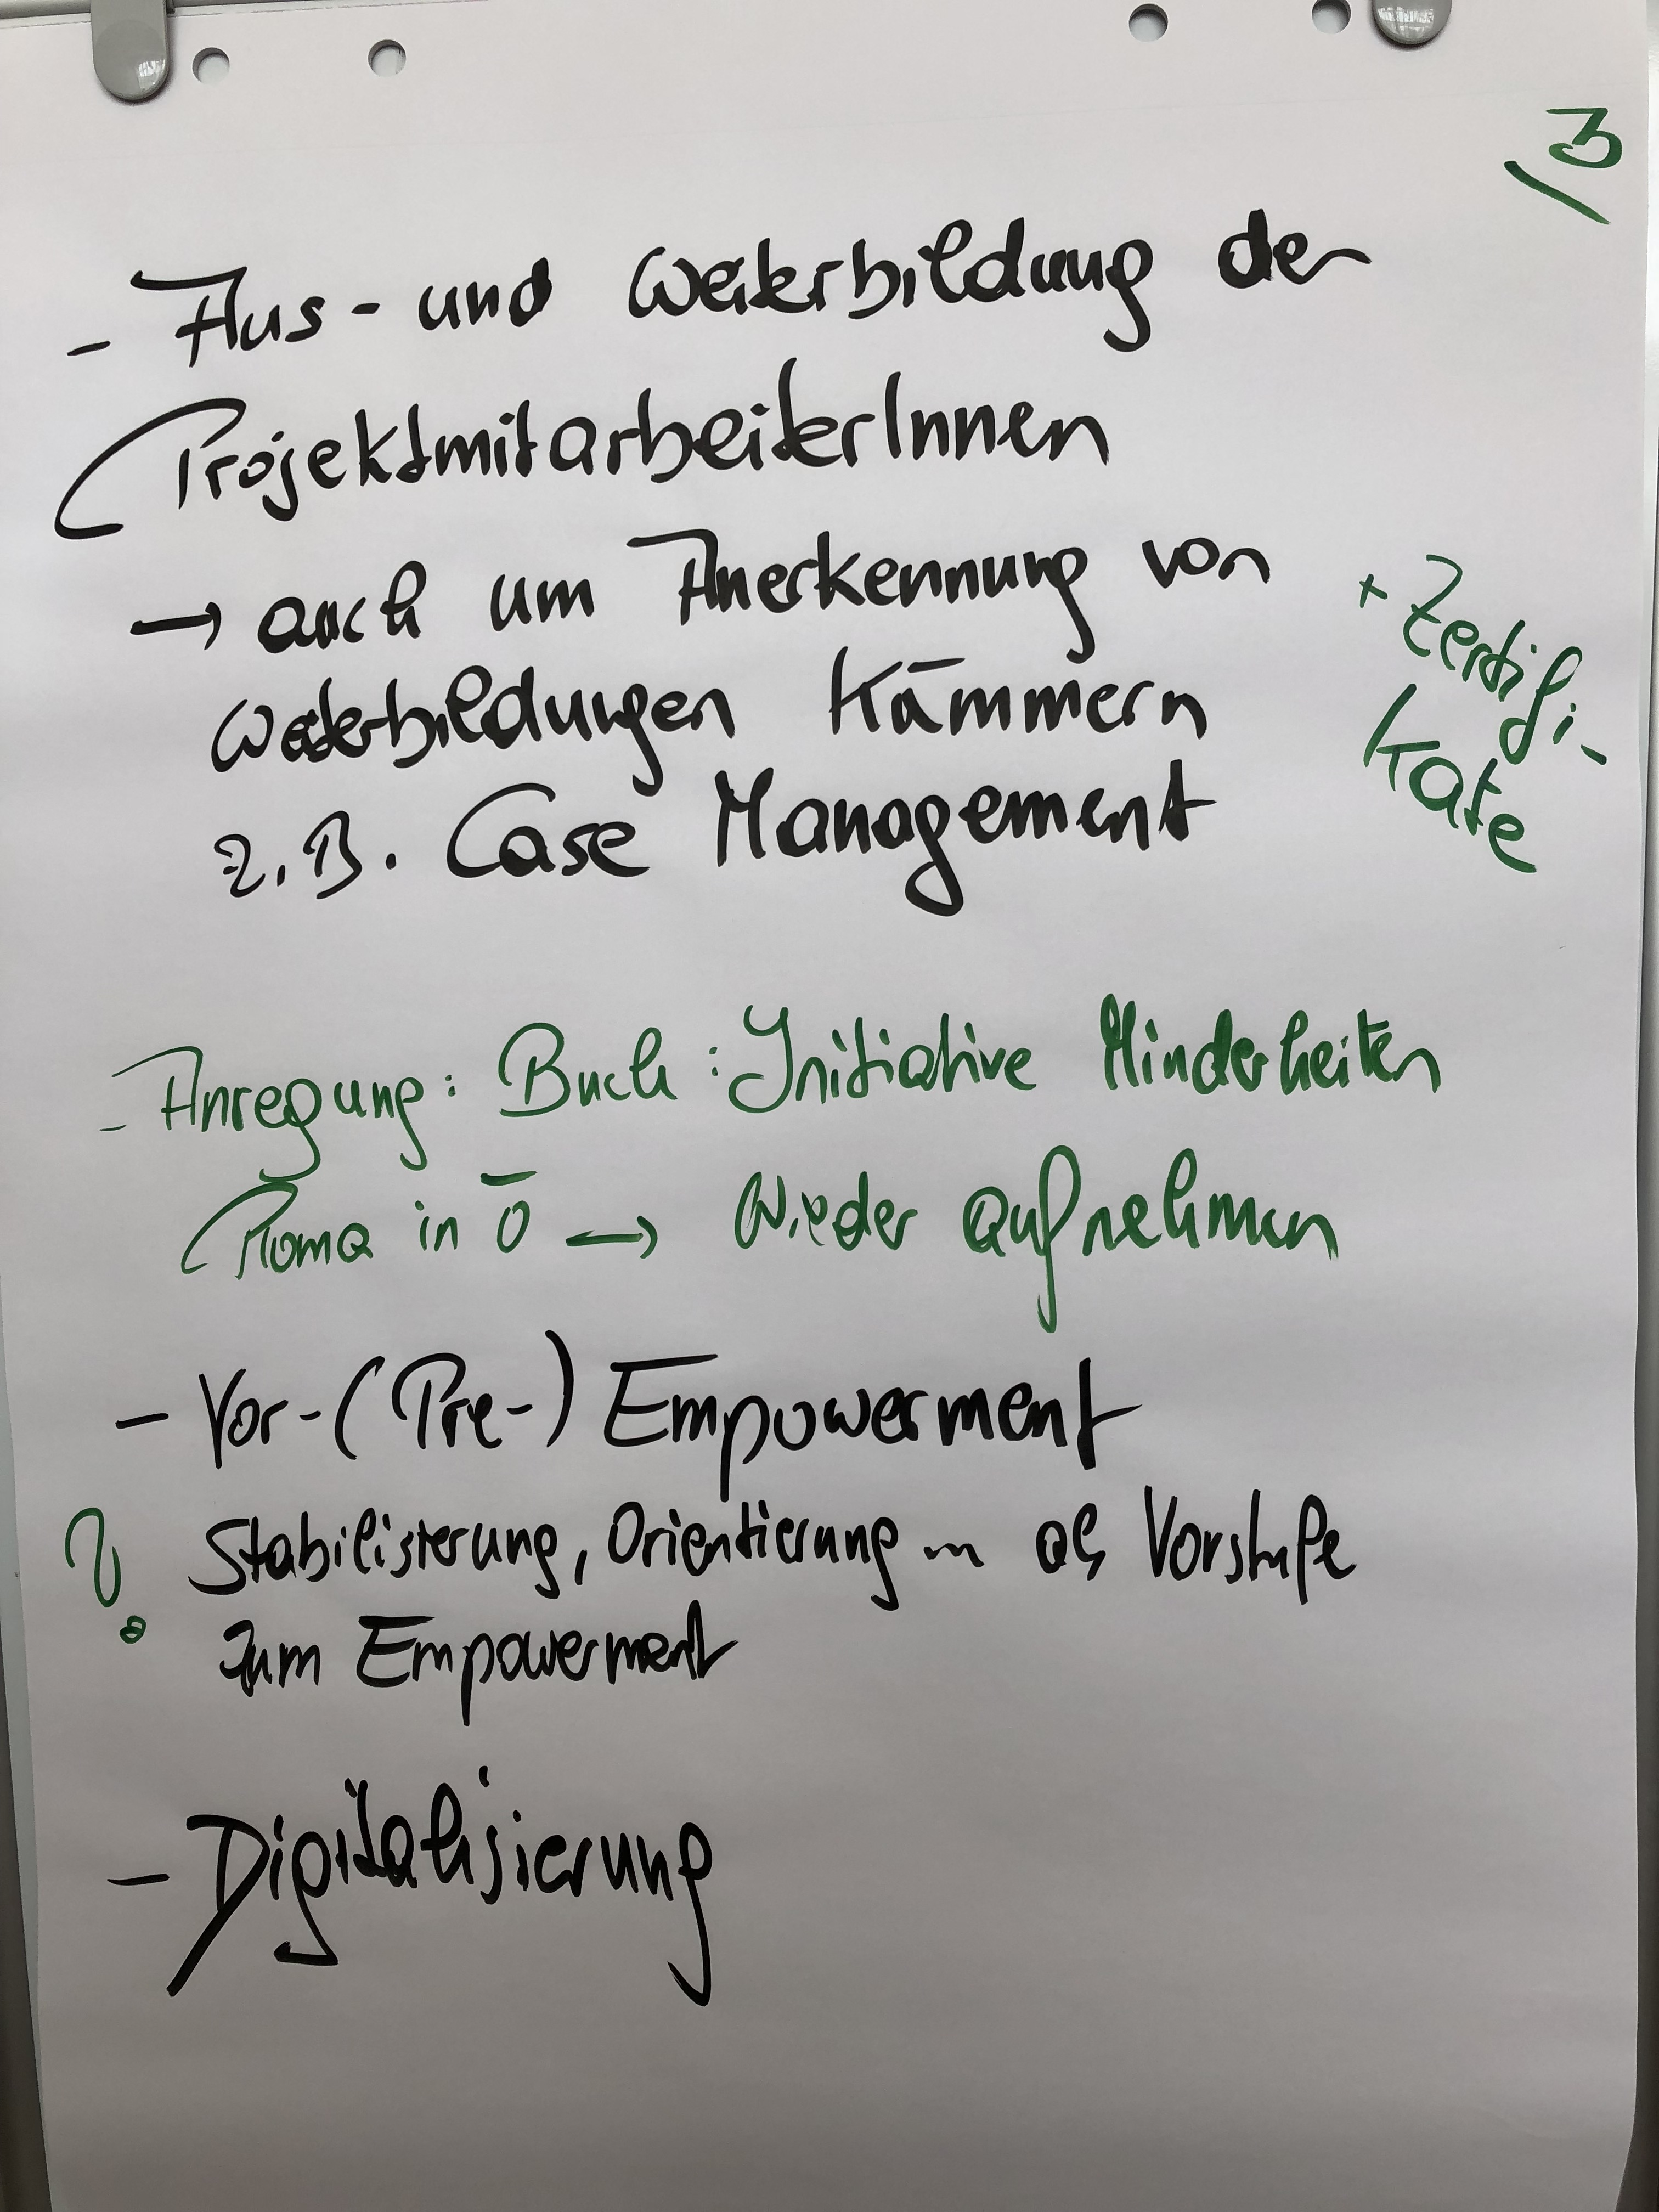 3
- Aus- und Weiterbildung der
ProjektmitarbeiterInnen
→ auch um Anerkennung von
Weiterbildungen kümmern
z.B. Case Management
+ Zertifi-
kate
- Anregung: Buch: Initiative Minderheiten
Roma in Ö → Wieder aufnehmen
- Vor-(Pre-) Empowerment
? Stabilisierung, Orientierung ... als Vorstufe
zum Empowerment
- Digitalisierung